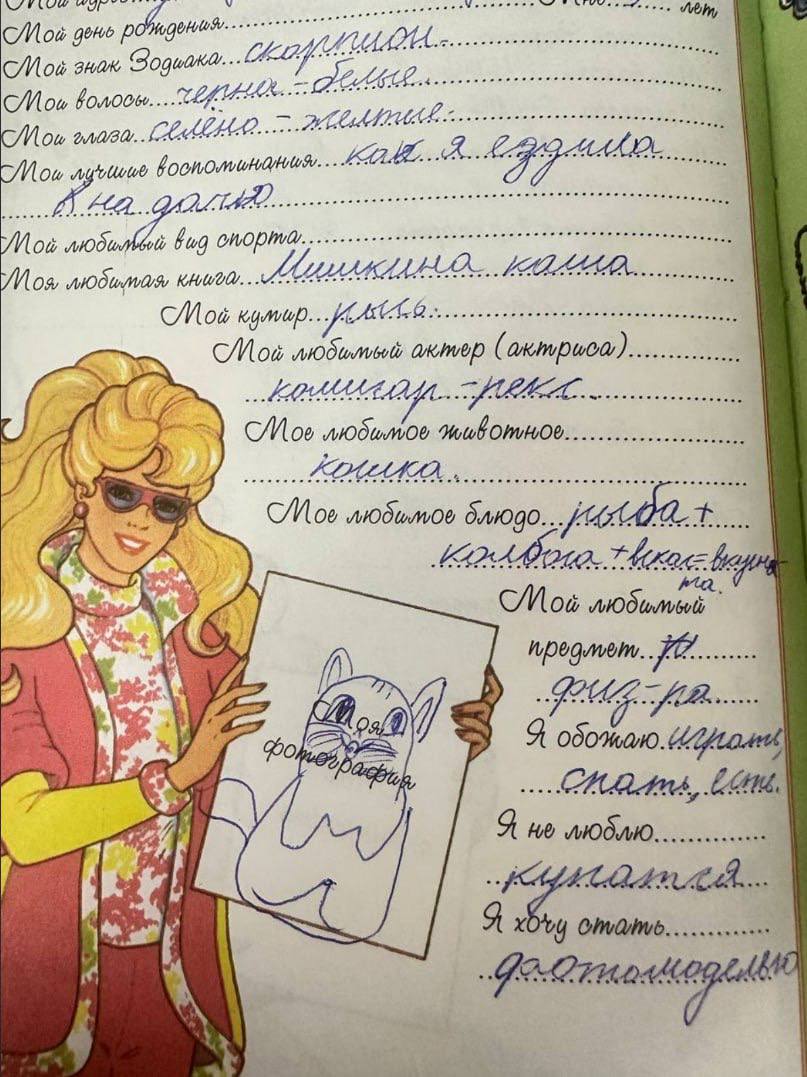 Мой день рождения
лет
Мой знак Зодиака скорпион.
Мои волосы черно-белые.
Мои глаза селёно-желтые.
Мои лучшие воспоминания как я ездила
на дачю
Мой любимый вид спорта
Моя любимая книга Мишкина каша
Мой кумир рысь.
Мой любимый актер (актриса)
комисар-рекс.
Мое любимое животное
кошка.
Мое любимое блюдо рыба +
колбоса + вскас = вкусно-
та.
Мой любимый
предмет
физ-ра
Я обожаю играть,
спать, есть.
Я не люблю
купатся
Я хочу стать
фотомоделью
Моя
фотография